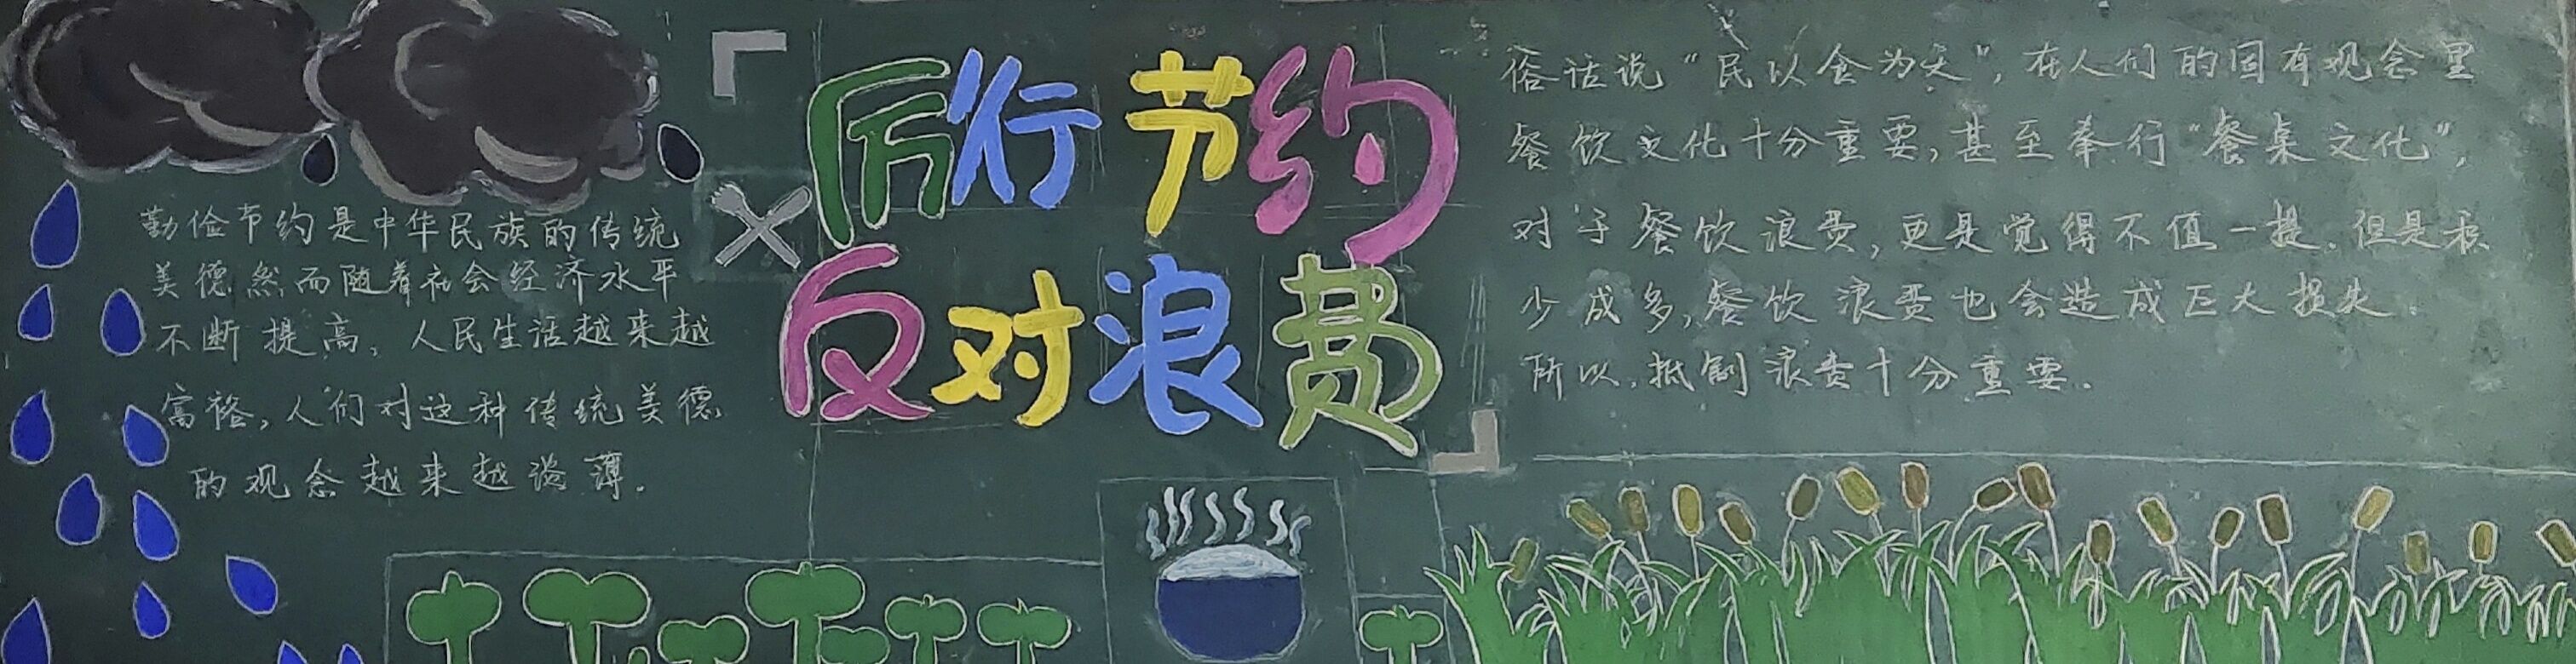 厉行节约
反对浪费
勤俭节约是中华民族的传统
美德然而随着社会经济水平
不断提高，人民生活越来越
富裕，人们对这种传统美德
的观念越来越淡薄.
俗话说“民以食为天”，在人们的固有观念里
餐饮文化十分重要，甚至奉行“餐桌文化”，
对于餐饮浪费，更是觉得不值一提.但是积
少成多，餐饮浪费也会造成巨大损失.
所以，抵制浪费十分重要.